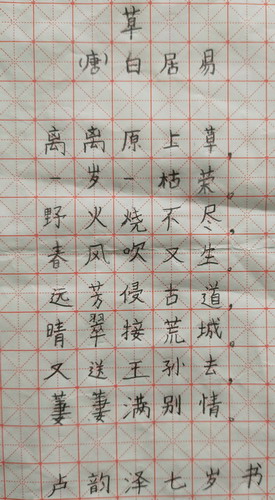 草
(唐)白居易
离离原上草，
一岁一枯荣。
野火烧不尽，
春风吹又生。
远芳侵古道，
晴翠接荒城。
又送王孙去，
萋萋满别情。
卢韵泽七岁书